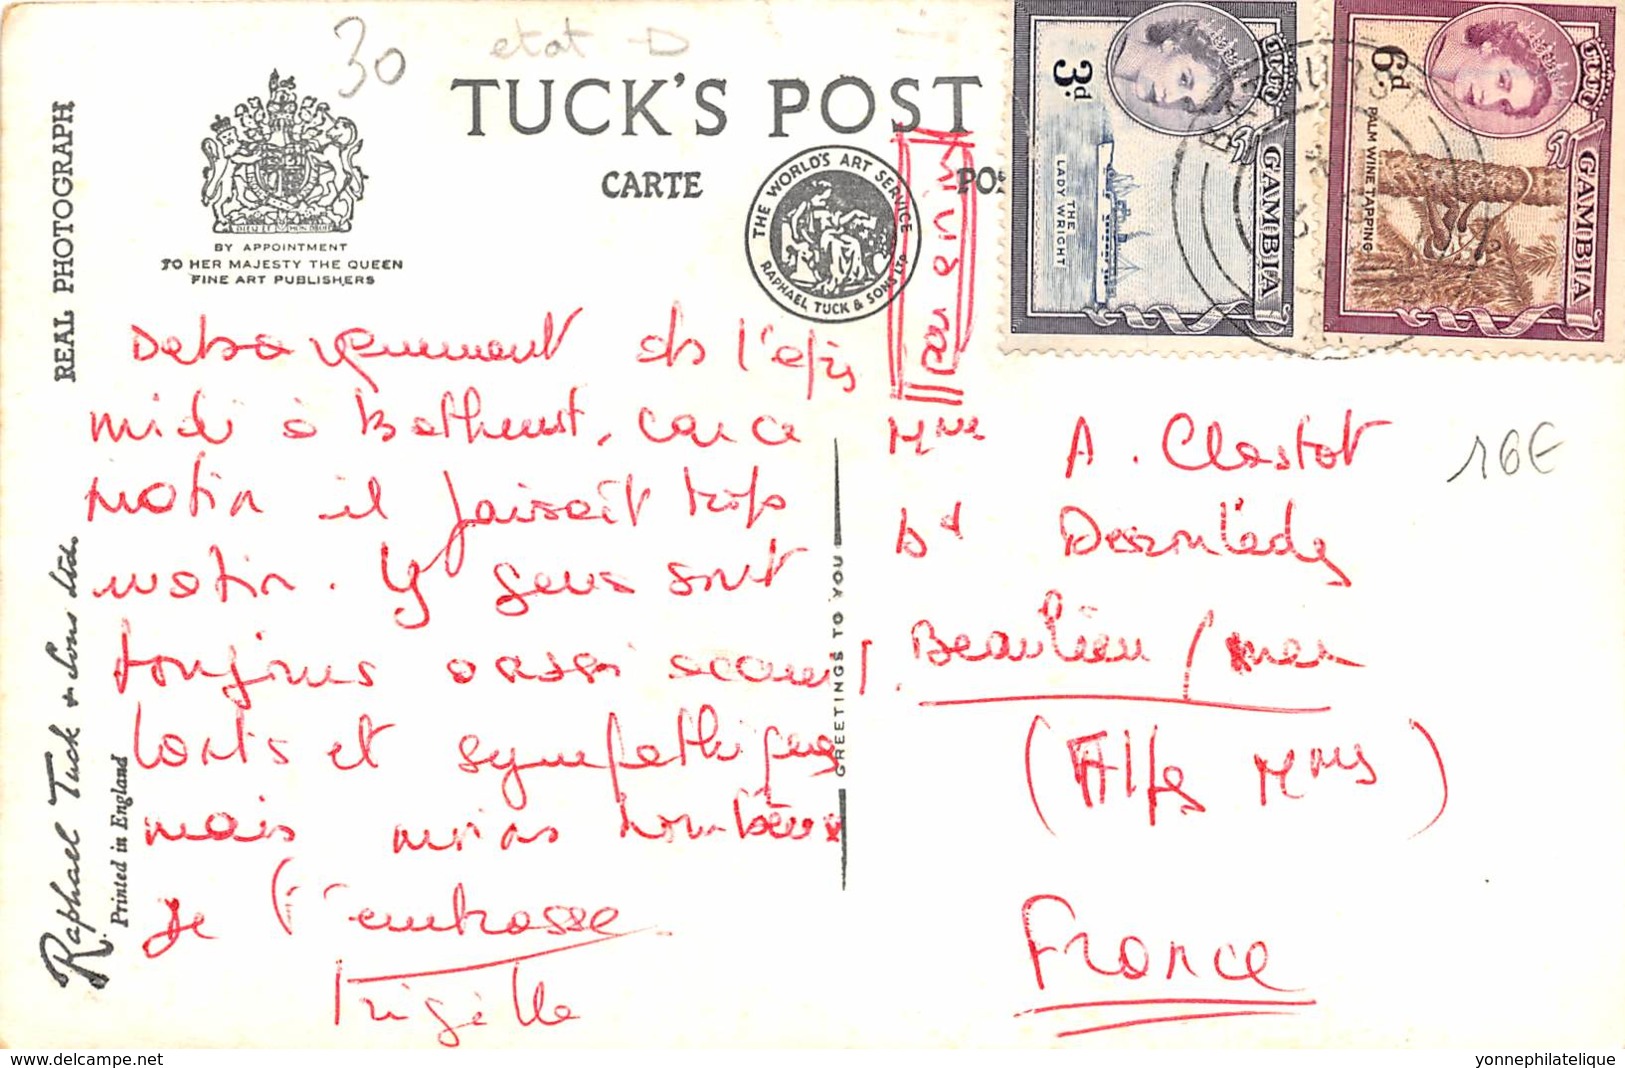 30
etat -D
TUCK'S POST
CARTE
PO
REAL PHOTOGRAPH
DIEU ET MON DROIT
BY APPOINTMENT
TO HER MAJESTY THE QUEEN
FINE ART PUBLISHERS
THE WORLD'S ART SERVICE
RAPHAEL TUCK & SONS LTD
par avion
3d
THE
LADY WRIGHT
GAMBIA
6d
PALM WINE TAPPING
GAMBIA
Debarquement ds l'après
midi à Bathurst, car ce
matin il faisait trop
matin. Y gens sont
toujours aussi accueil
lants et sympathiques
mais moins nombreux
Je t'embrasse
GREETINGS TO YOU
Mme A. Clastot
Bd
Beaulieu / mer
(Alpes Mmes)
France
16€
Raphael Tuck & Sons Ltd.
Printed in England
www.delcampe.net
yonnephilatelique